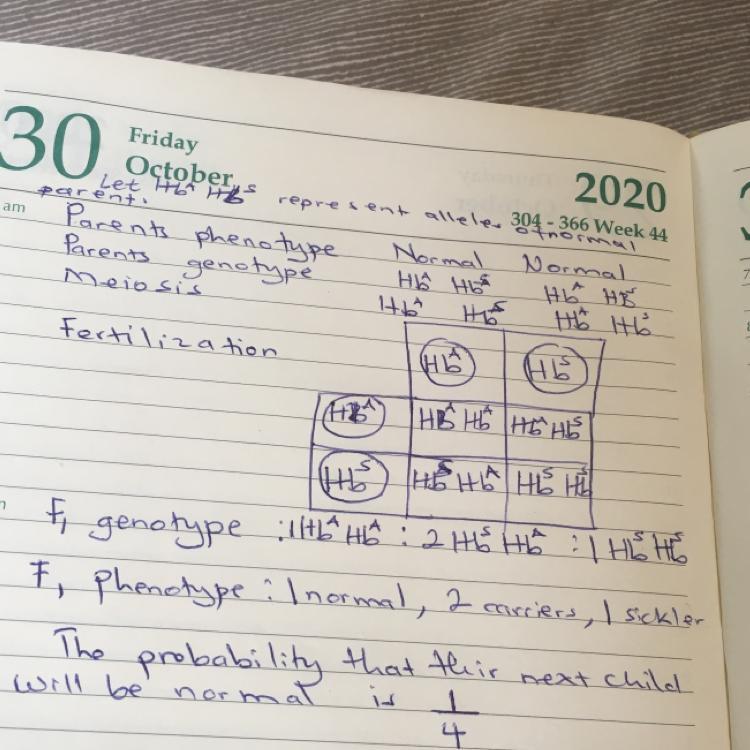 30 Friday
October
2020
304 - 366 Week 44
am
Let Hb^A Hb^S represent alleles of normal
parent.
Parents phenotype Normal Normal
Parents genotype Hb^A Hb^S Hb^A Hb^S
Meiosis Hb^A Hb^S Hb^A Hb^S
Fertilization
Hb^A Hb^S
Hb^A Hb^A Hb^A Hb^A Hb^S
Hb^S Hb^S Hb^A Hb^S Hb^S
F₁ genotype : 1 Hb^A Hb^A : 2 Hb^S Hb^A : 1 Hb^S Hb^S
F₁ phenotype : 1 normal, 2 carriers, 1 sickler
The probability that their next child
will be normal is 1/4